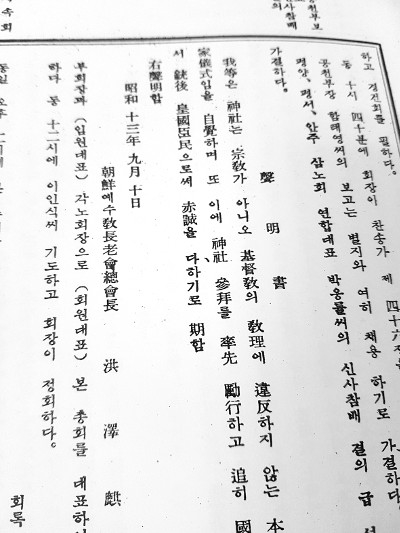 신사참배
속회
하고 경건회를 필하다.
동 十시 四十분에 회장이 찬송가 제 四十六장을
공천부장 함태영씨의 보고는 별지와 여히 채용 하기로 가결하다
평양, 평서, 안주 삼노회 연합대표 박응률씨의 신사참배 결의 급 선
가결하다。
聲明書
我等은 神社는 宗敎가 아니오 基督敎의 敎理에 違反하지 않는 本
家儀式임을 自覺하며 또 이에 神社 參拜를 率先 勵行하고 追히 國
서 銃後 皇國臣民으로써 赤誠을 다하기로 期함
右聲明함
昭和 十三年 九月 十日
朝鮮예수敎長老會總會長 洪澤麒
부회장과 (임원대표) 각노회장으로 (회원대표) 본 총회를 대표하
하다 동 十二시에 이인식씨 기도하고 회장이 정회하다。
회록